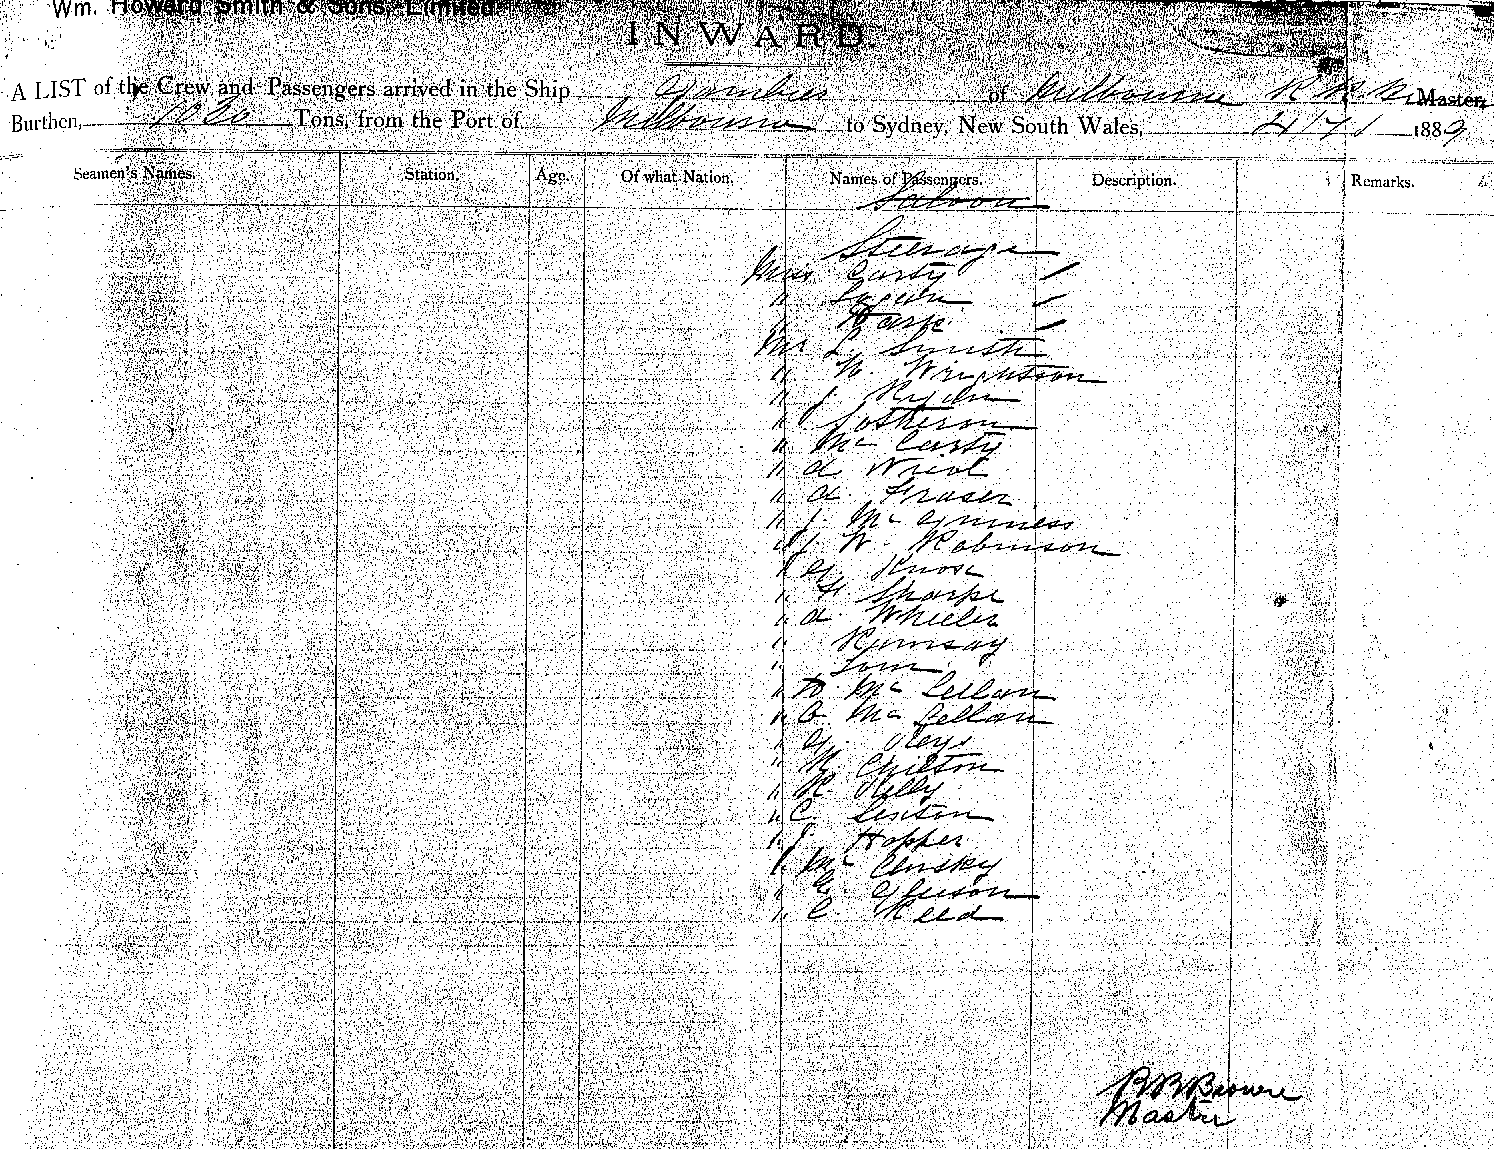 Wm. Howard Smith & Sons, Limited
INWARD.
A LIST of the Crew and Passengers arrived in the Ship Gambier of Melbourne R B B Master,
Burthen, Tons, from the Port of Melbourne to Sydney, New South Wales, 1889
Seamen's Names. Station. Age. Of what Nation. Names of Passengers. Description. Remarks.
Saloon
Steerage
Miss Carty
" 
" 
Mr L. Smith
" W. Wrightson
" J. Ryan
" Sotheron
" Mc Carty
" A
" A. Fraser
" J. Mc Ginness
" J. W. Robinson
" G. Knox
" F. Sharpe
" A. Wheeler
" Rumsay
" 
" D. Mc Lellan
" C. Mc Lellan
" G.
" Chilton
" R. Kelly
" C. Sexton
" J. Hopper
" Mc Clusky
" 
" C. Reed
R B Browne
Master